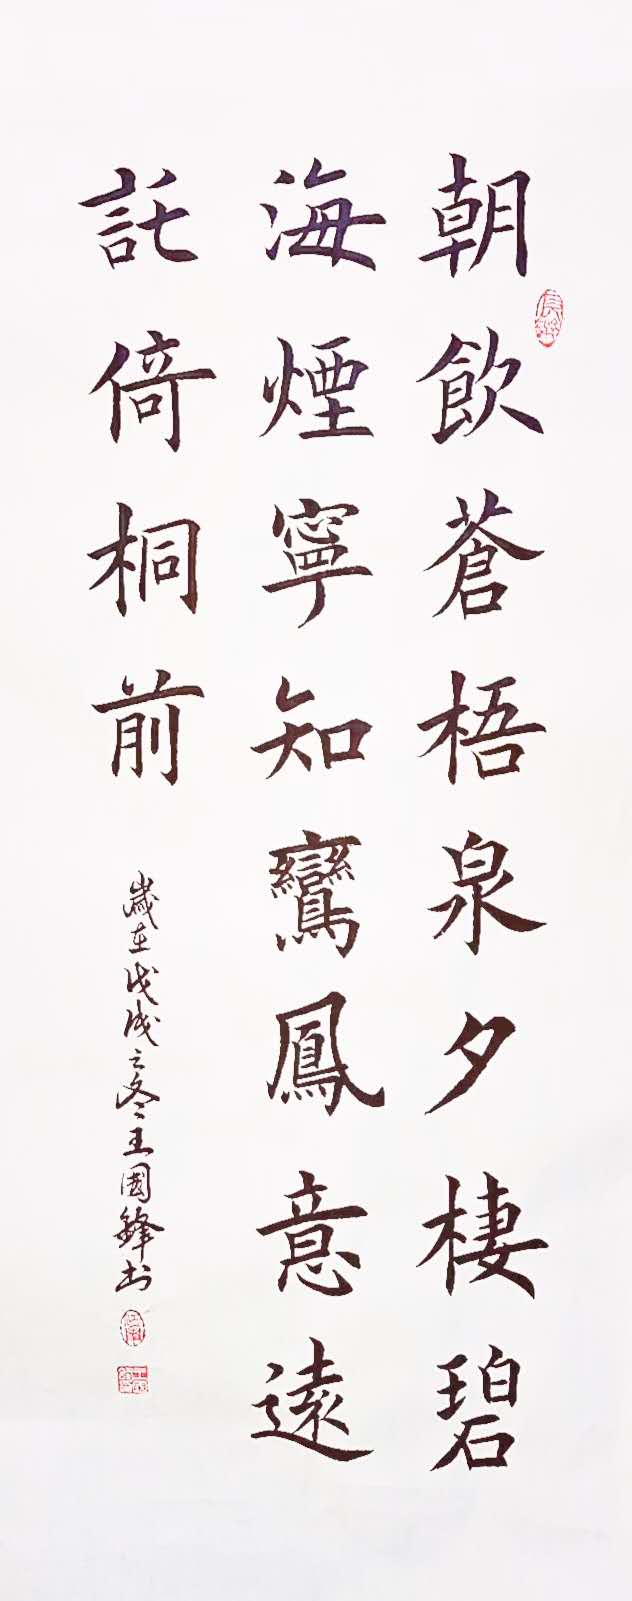 朝飲蒼梧泉夕棲碧
海煙寧知鸞鳳意遠
託倚桐前
歲在戊戌之冬王國鋒书